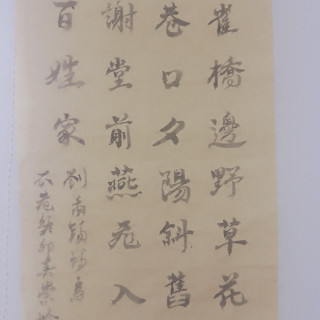 雀橋邊野草花
巷口夕陽斜舊
謝堂前燕飛入
百姓家
劉禹錫詩烏
衣巷